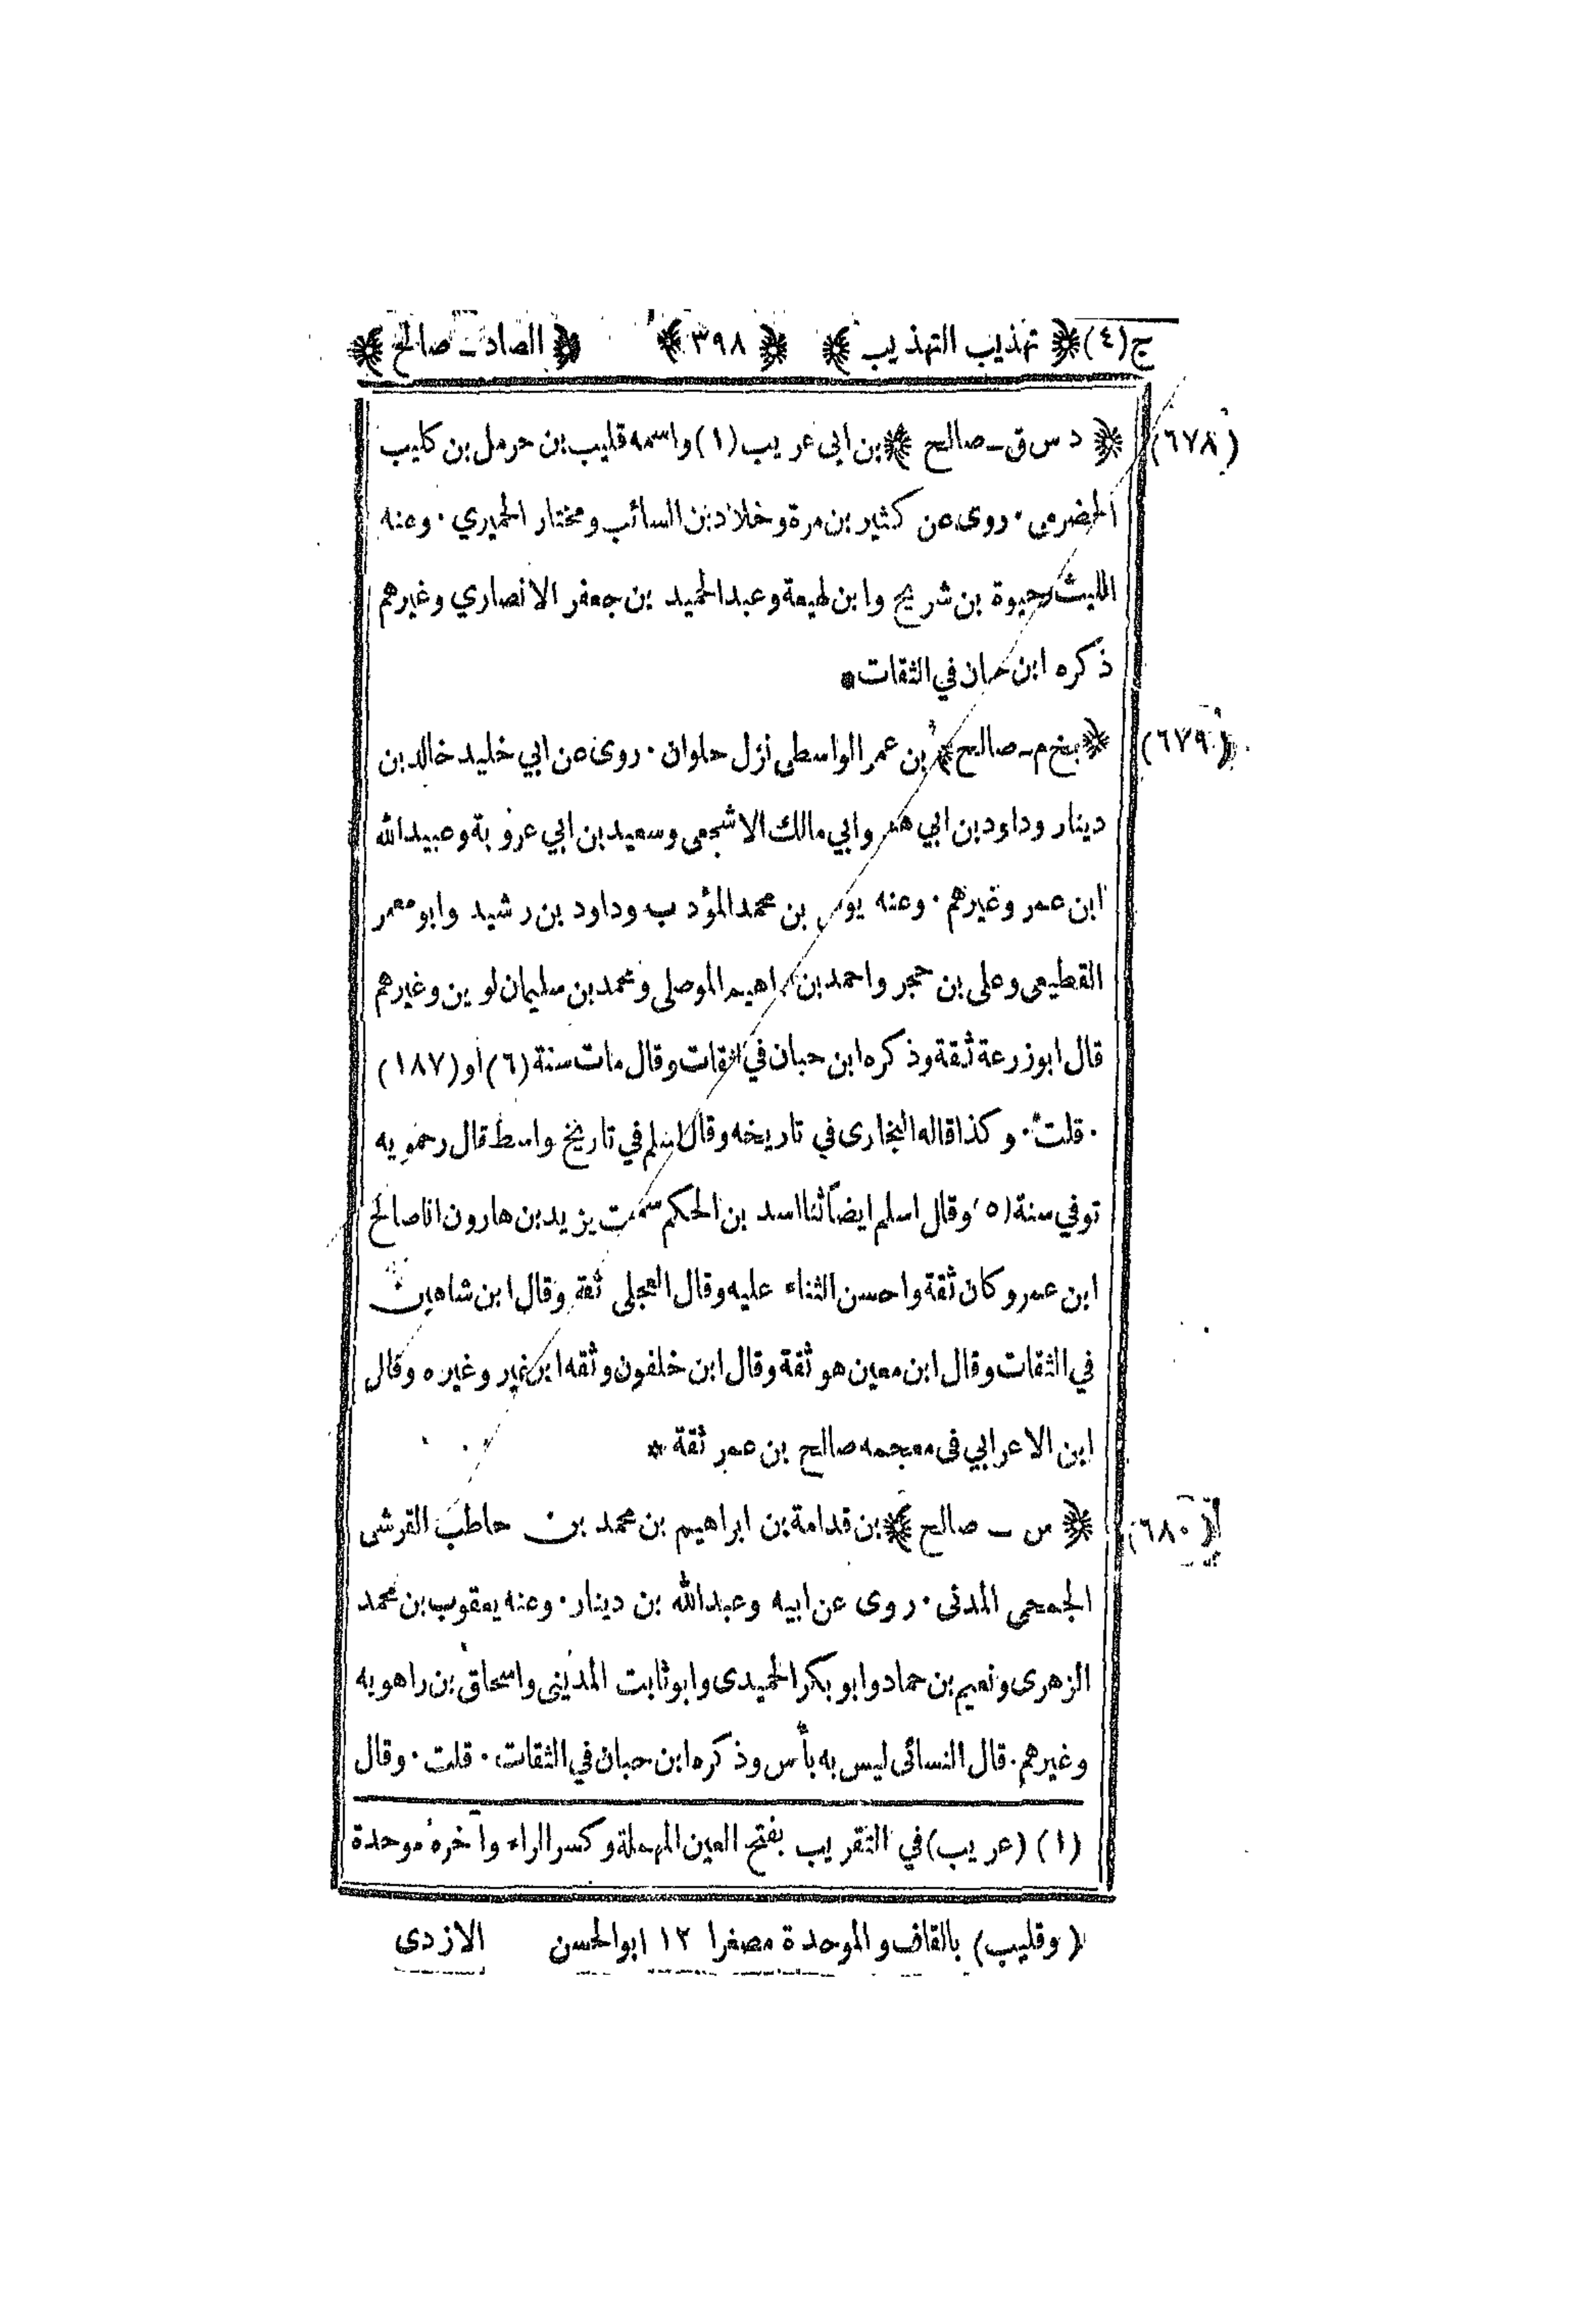 ج(٤) ﴿ تهذيب التهذيب ﴾ ﴿ ٣٩٨ ﴾ ﴿ الصاد ــ صالح ﴾
(٦٧٨) ﴿ د س ق ــ صالح ﴾ بن ابى عريب (١) واسمه قليب بن حرمل بن كليب
الحضرمى . روى عن كثير بن مرة وخلاد بن السائب ومختار الحميري . وعنه
الليث وحيوة بن شريح وابن لهيعة وعبدالحميد بن جعفر الانصاري وغيرهم
ذكره ابن حبان في الثقات *
(٦٧٩) ﴿ بخ م ــ صالح ﴾ بن عمر الواسطى نزل حلوان . روى عن ابي خليد خالد بن
دينار وداود بن ابي هند وابي مالك الاشجعى وسعيد بن ابي عروبة وعبيدالله
ابن عمر وغيرهم . وعنه يونس بن محمد المؤدب وداود بن رشيد وابو معمر
القطيعى وعلى بن حجر واحمد بن ابراهيم الموصلى ومحمد بن سليمان لوين وغيرهم
قال ابوزرعة ثقة وذكره ابن حبان في الثقات وقال مات سنة (٦) او (١٨٧)
. قلت . وكذا قاله البخارى في تاريخه وقال اسلم في تاريخ واسط قال رحمويه
توفي سنة (٥) وقال اسلم ايضاً ثنا اسد بن الحكم سمعت يزيد بن هارون انا صالح
ابن عمر وكان ثقة واحسن الثناء عليه وقال العجلى ثقة وقال ابن شاهين
في الثقات وقال ابن معين هو ثقة وقال ابن خلفون وثقه ابن نمير وغيره وقال
ابن الاعرابي فى معجمه صالح بن عمر ثقة *
(٦٨٠) ﴿ س ــ صالح ﴾ بن قدامة بن ابراهيم بن محمد بن حاطب القرشى
الجمحى المدنى . روى عن ابيه وعبدالله بن دينار . وعنه يعقوب بن محمد
الزهرى ونعيم بن حماد وابو بكر الحميدى وابو ثابت المدينى واسحاق بن راهويه
وغيرهم . قال النسائى ليس به بأس وذكره ابن حبان في الثقات . قلت . وقال
(١) (عريب) في التقريب بفتح العين المهملة وكسر الراء وآخره موحدة
(وقليب) بالقاف والموحدة مصغرا ١٢ ابوالحسن الازدى